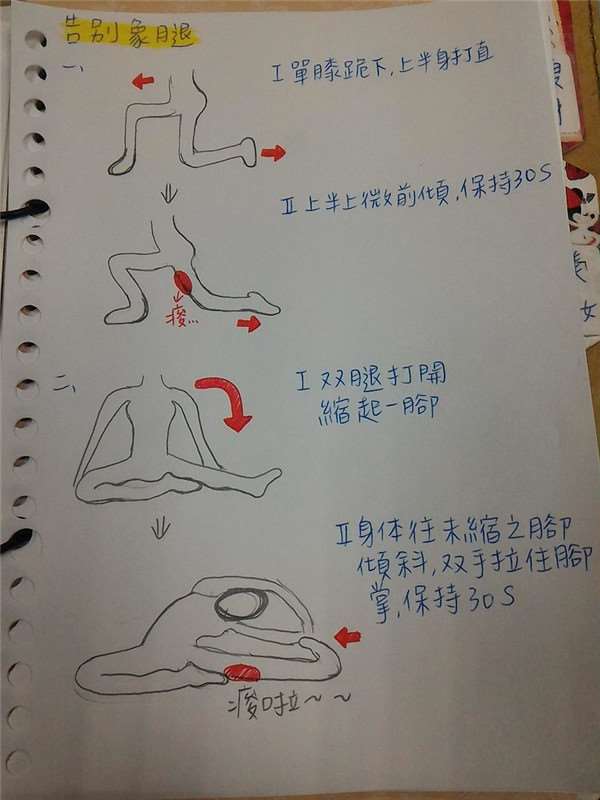 告別象腿
一、
I 單膝跪下,上半身打直
II 上半上微前傾,保持30S
痠...
二、
I 双腿打開
縮起一腳
II 身体往未縮之腳
傾斜,双手拉住腳
掌,保持30S
痠啦~~
女